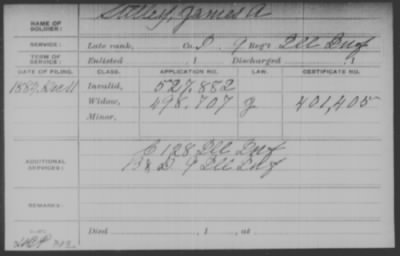 NAME OF SOLDIER: James A
SERVICE: Late rank, Co. D, 9 Reg't Ill Inf
TERM OF SERVICE: Enlisted , 1 Discharged , 1
DATE OF FILING. CLASS. APPLICATION NO. LAW. CERTIFICATE NO.
Invalid, 527.882
Widow, 498.707 g 401,405
Minor,
C 128 Ill Inf
ADDITIONAL SERVICES: D 9 Ill Inf
REMARKS:
Died , 1 , at